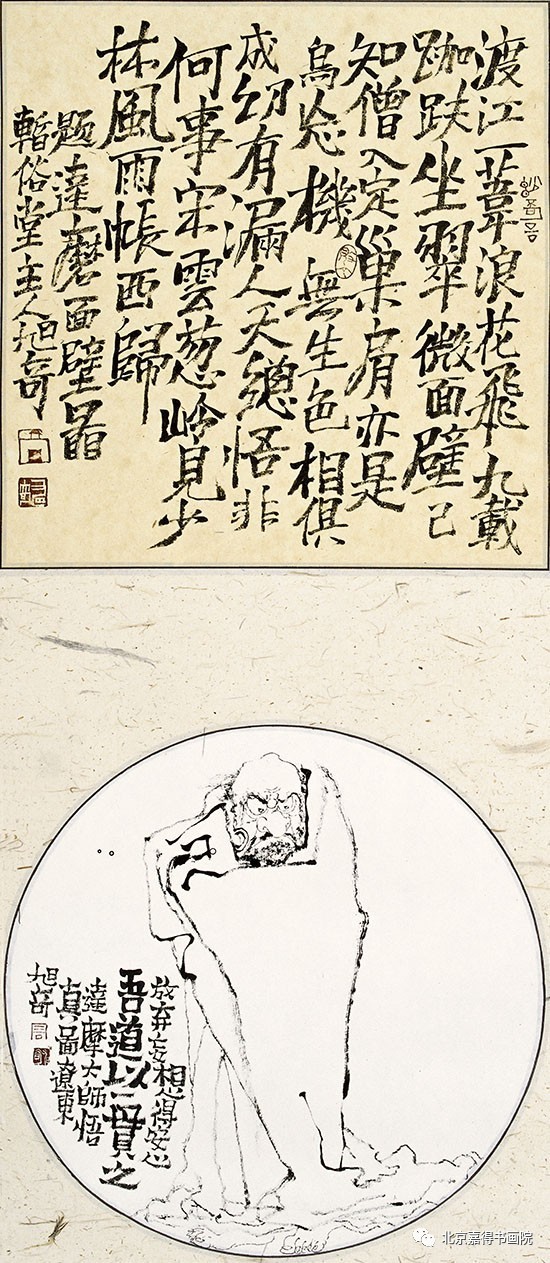 渡江一葦浪花飛九載
跏趺坐翠微面壁已
知僧入定巢肩亦是
烏忘機無生色相俱
成幻有漏人天總悟非
何事宋雲葱岭見少
林風雨悵西歸
题達磨面壁啚
暫俗堂主人旭奇
放弃妄想得安心
吾道以一貫之
達摩大師悟
真啚遼東
旭奇
北京嘉得书画院